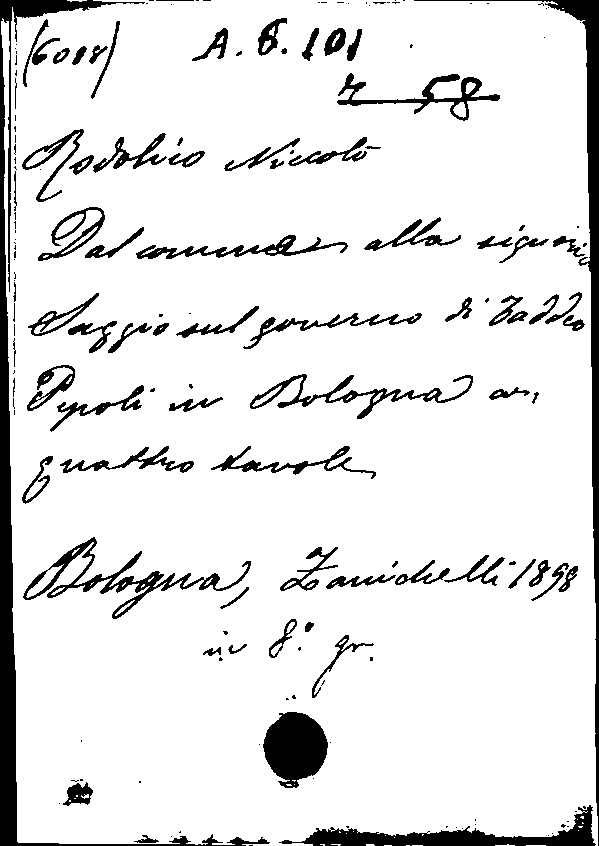 (6018) A. 6. 101
r 58
Rodolico Niccolò
Dal comune alla signoria
Saggio sul governo di Taddeo
Pepoli in Bologna con
quattro tavole
Bologna, Zanichelli 1898
in 8.° gr.